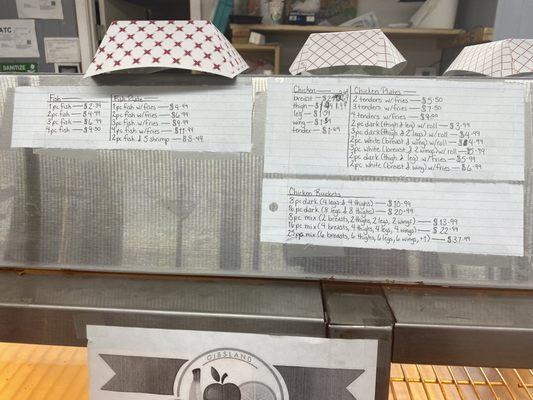 ATC
SANITIZE
Fish
1pc fish — $2.99
2pc fish — $4.99
3pc fish — $6.99
4pc fish — $9.00
Fish Plate
1pc fish w/fries — $4.99
2pc fish w/fries — $6.99
3pc fish w/fries — $9.99
4pc fish w/fries — $11.99
2pc fish & 5 shrimp — $8.99
Chicken
breast
thigh
leg
wing
tender — $1.49
Chicken Plates
2 tenders w/fries — $5.50
3 tenders w/fries — $7.50
4 tenders w/fries — $9.00
2pc dark (thigh & leg) w/roll — $3.99
3pc dark (thigh & 2 legs) w/roll — $4.99
2pc white (breast & wing) w/roll — $4.99
3pc white (breast & 2 wings) w/roll — 5.99
2pc dark (thigh & leg) w/fries — $5.99
2pc white (breast & wing) w/fries — $6.99
Chicken Buckets
8pc dark (4 legs & 4 thighs) — $10.99
16pc dark (8 legs & 8 thighs) — $20.99
8pc mix (2 breasts, 2 thighs, 2 legs, 2 wings) — $13.99
16pc mix (4 breasts, 4 thighs, 4 legs, 4 wings) — $22.99
25pc mix (6 breasts, 6 thighs, 6 legs, 6 wings, +1) — $37.99
GIBSLAND